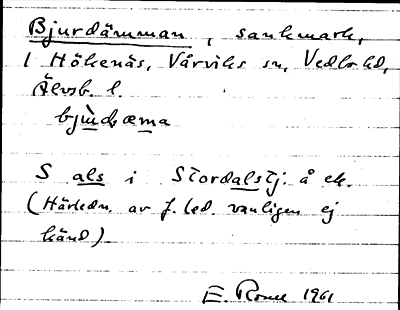 Bjurdämman, sankmark,
l Hökenäs, Vårviks sn, Vedbo hd,
Älvsb. l.
bjùdæma
S als i Stordalstj. å ek.
(Härledn. av f. led. vanligen ej
känd)
E. 1961